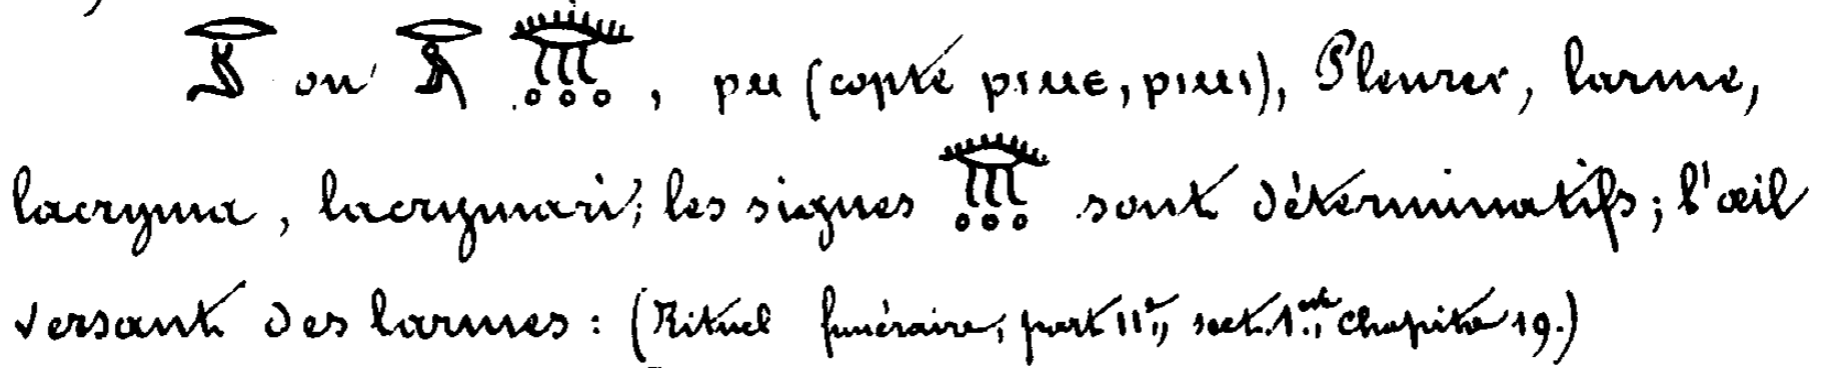 ou 𓂿, ⲣⲙ (copte ⲣⲓⲙⲉ, ⲣⲓⲙⲓ), Pleurer, larme,
lacryma, lacrymari; les signes 𓂿 sont déterminatifs; l'œil
versant des larmes: (Rituel funéraire, part. II<sup>e</sup>, sect. 1.<sup>ere</sup>, chapitre 19.)